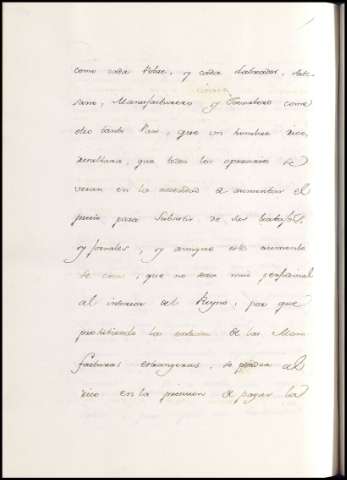 como cada Pobre, y cada Labrador, Arte-
sano, Manufacturero y Jornalero come
dos tanto Pan, que un hombre rico,
resultaria, que todos los operarios se
verian en la necesidad de aumentar el
precio para subsistir de sus trabajos,
y jornales, y aunque este aumento
se crea, que no sea mui perjudicial
al interior del Reyno, por que
prohibiendo la entrada de las Manu
facturas estrangeras, se pondra al
rico en la precision de pagar la